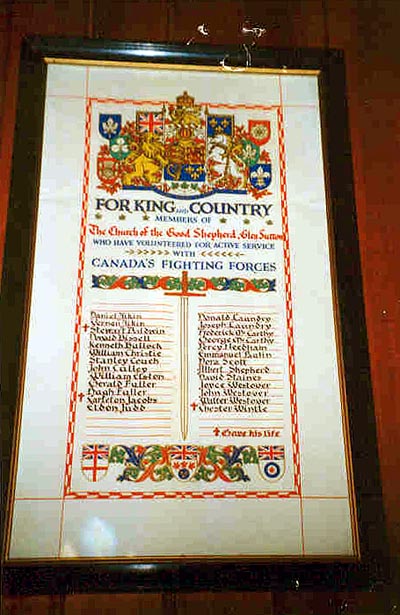 FOR KING AND COUNTRY
MEMBERS OF
The Church of the Good Shepherd, Glen Sutton
WHO HAVE VOLUNTEERED FOR ACTIVE SERVICE
WITH
CANADA'S FIGHTING FORCES
Daniel Aikin
Vernon Aikin
† Stewart Baldwin
Donald Bissell
Kenneth Bullock
William Christie
Stanley Couch
John Culley
William Elston
Gerald Fuller
Hugh Fuller
† Carleton Jacobs
Eldon Judd
Donald Laundry
Joseph Laundry
Frederick McCarthy
George McCarthy
Percy Needham
Emmanuel Paulin
Dora Scott
Albert Shepherd
David Staines
Joyce Westover
John Westover
Walter Westover
† Chester Wintle
† Gave his life